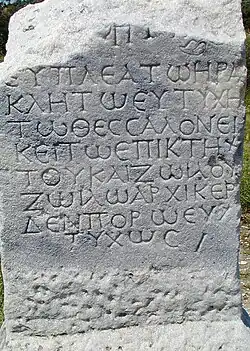 ΕΥΠΛΕΑΤΩΗΡΑ
ΚΛΗΤΩΕΥΤΥΧΗ
ΤΩΘΕϹϹΑΛΟΝΕΙ
ΚΕΙΤΩΕΠΙΚΤΗ
ΤΟΥΚΑΙΖΩΙΛΟΥ
ΖΩΙΛΩΑΡΧΙΚΕΡ
ΔΕΜΠΟΡΩΕΥ
ΤΥΧΩϹ /